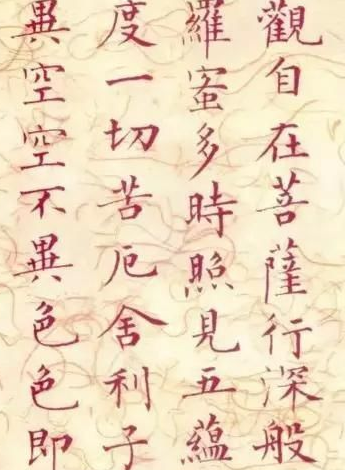 觀自在菩薩行深般
羅蜜多時照見五蘊
度一切苦厄舍利子
異空空不異色色即